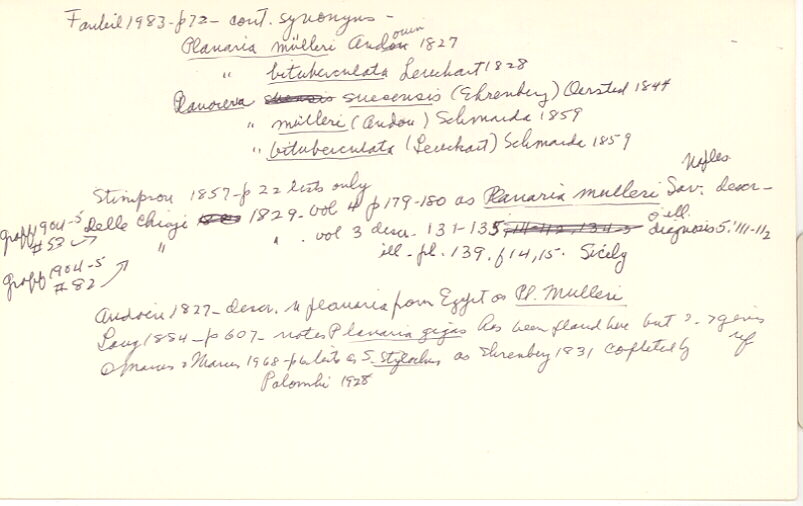 Faubel 1983 - p72 - cont. synonyms -
Planaria mülleri Audouin 1827
" bituberculata Leuckart 1828
Planocera suesensis (Ehrenberg) Oersted 1844
" mülleri (Audou) Schmarda 1859
" bituberculata (Leuckart) Schmarda 1859
Stimpson 1857 - p 22 lists only
Naples
Delle Chiaji 1829 - vol 4 p179-180 as Planaria mulleri Sav. descr -
Graff 1904-5 #53
" " vol 3 descr. 131-135, 111-112, 134-5 diagnosis 5:111-112
& ill.
ill - pl. 139, f14,15. Sicily
Graff 1904-5 #82
Audouin 1827 - descr. planaria from Egypt as Pl. Mulleri
Lang 1884 - p607 - notes Planaria gigas has been placed here but ? - > gives ref
Marcus & Marcus 1968 - p lists as S. Stylochus as Ehrenberg 1831 completed by
Palombi 1928